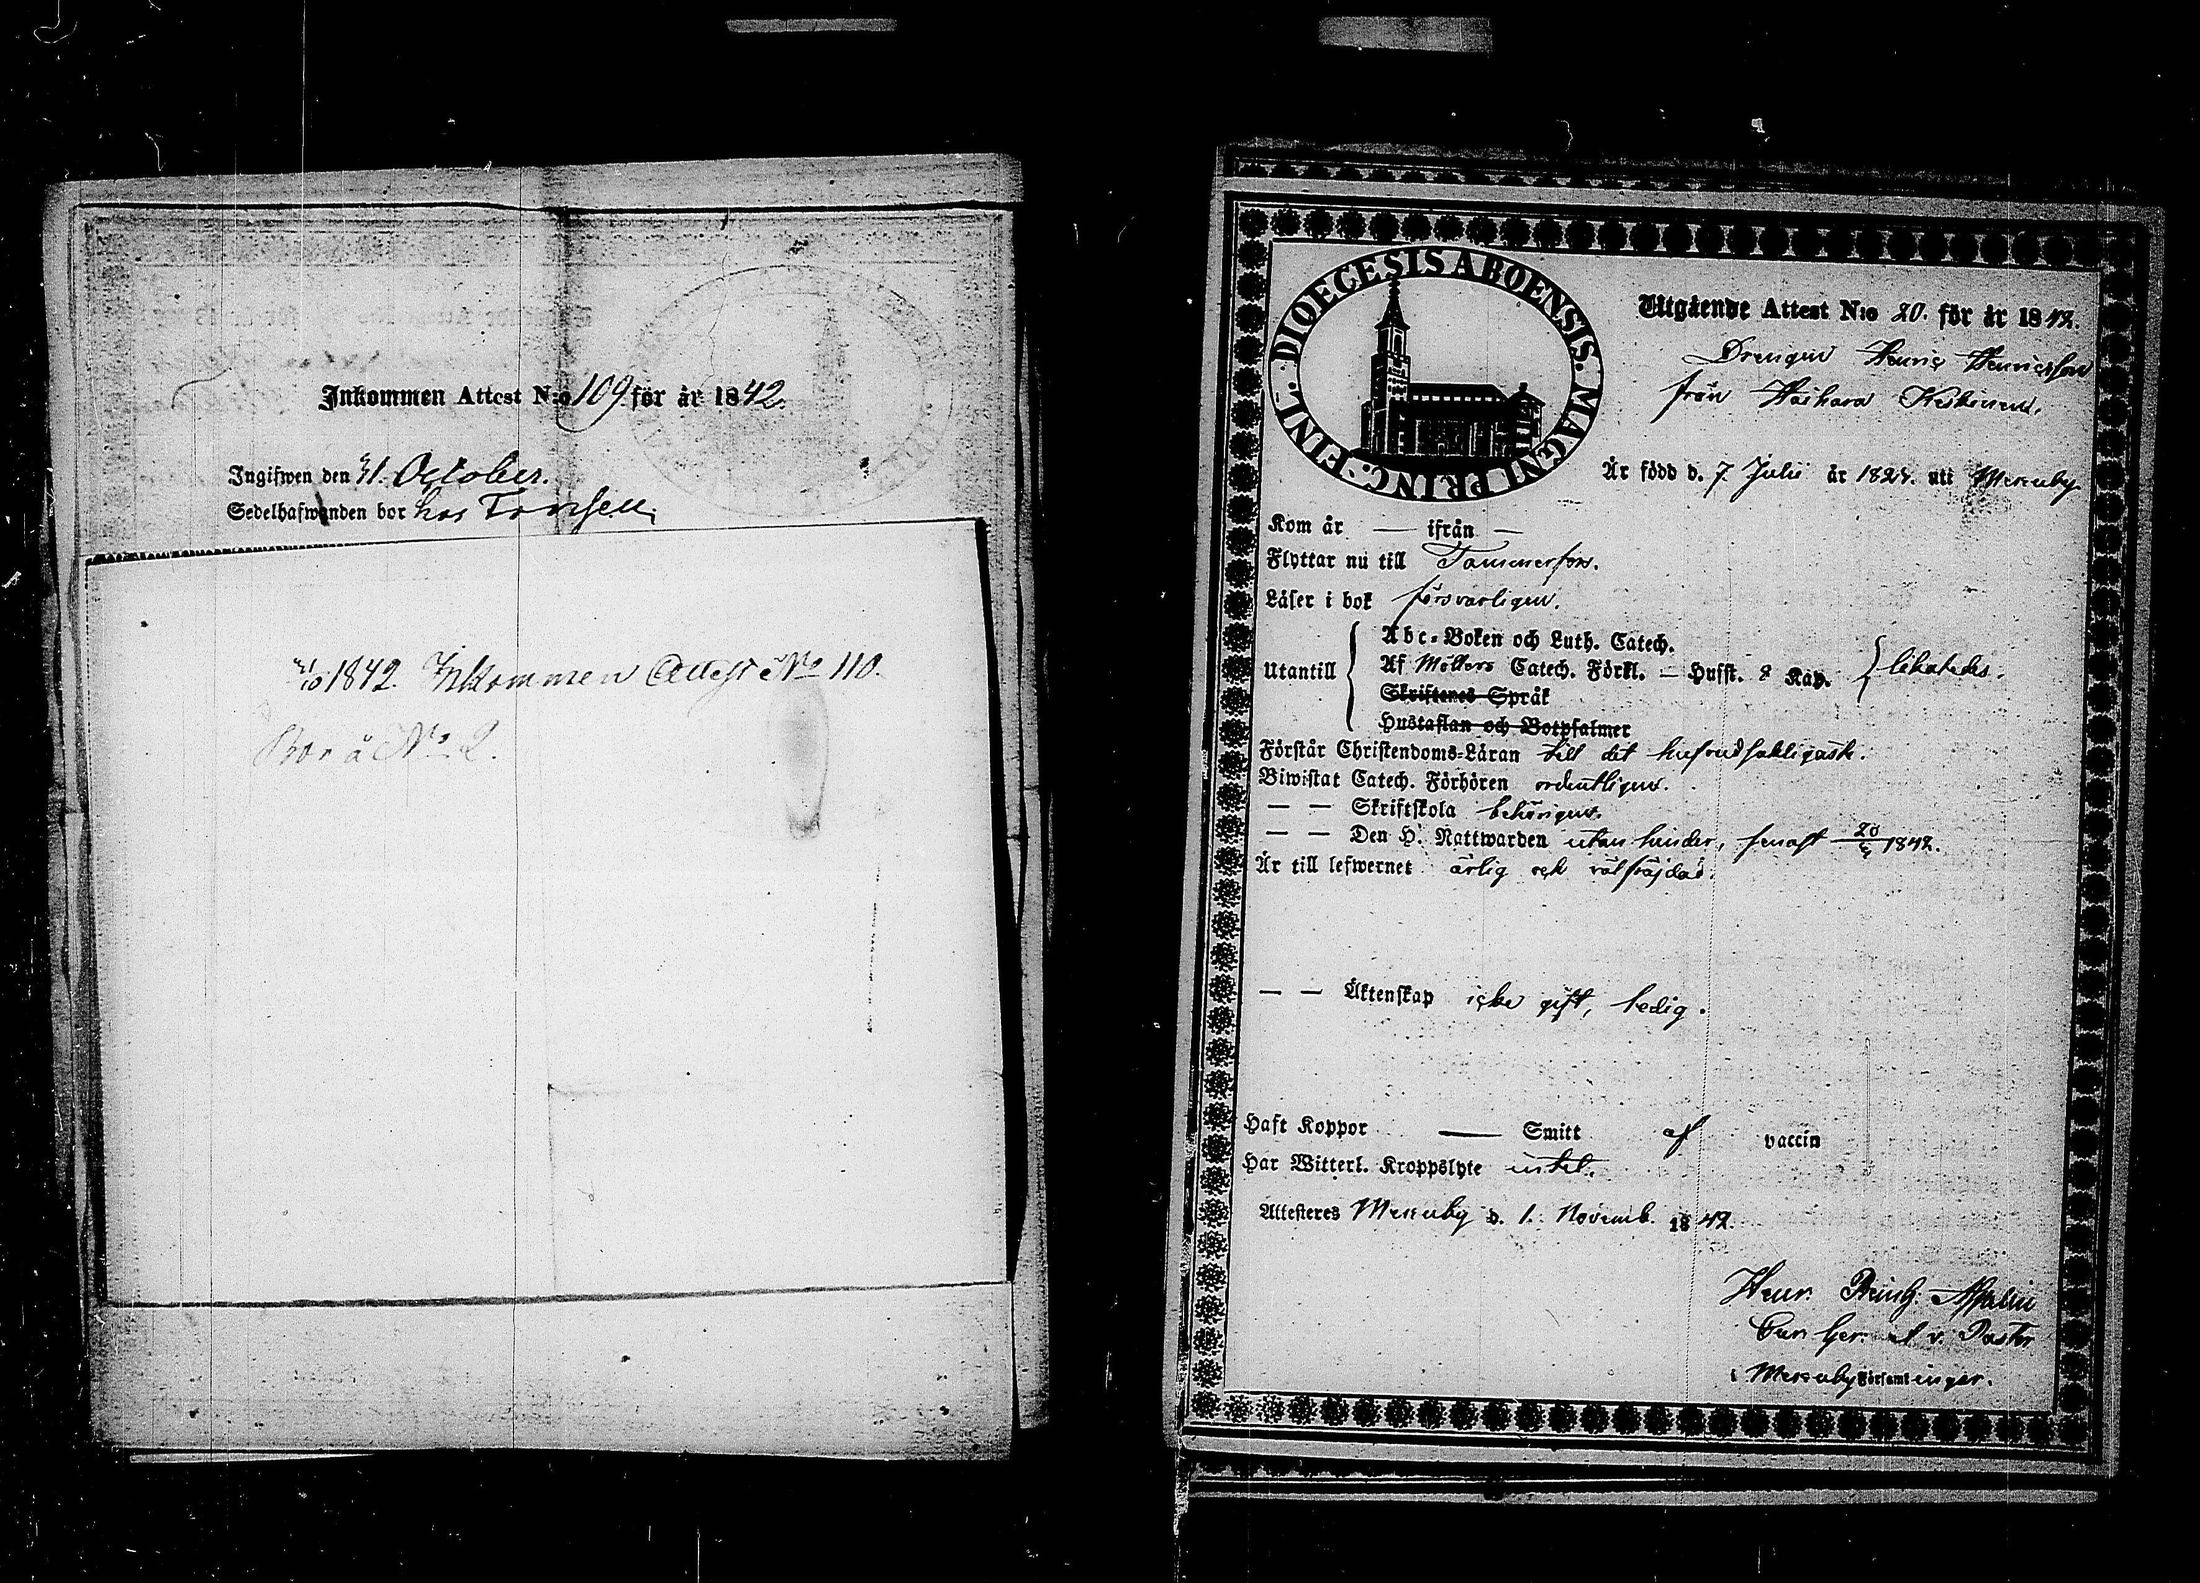 Inkommen Attest N:o 109 för år 1842.
Ingifwen den 31. October.
Sedelhafwanden bor hos
31/10 1842. Inkommen Attest No 110.
Bor å No 2.
DIOECESIS ABOENSIS. MAGNI PRINC: FINL.
Utgående Attest N:o 20. för år 1842.
Drengen Henric Henricsson
från
Är född d. 7. Julii år uti Messuby
Kom år — ifrån —
Flyttar nu till Tammerfors.
Läser i bok försvarligen.
Abc-Boken och Luth. Catech.
Utantill Af Möllers Catech. Förkl. — Husst. 8 Kap.
Skriftenes Språk
Hustaflan och Botpsalmer
Förstår Christendoms-Läran till det hufvudsakligaste.
Biwistat Catech. Förhören ordentligen.
— — Skriftskola behörigen.
— — Den H. Nattwarden utan hinder, senast 1842.
Är till lefwernet ärlig och välfräjdad.
— — Äktenskap icke gift, ledig.
Haft Koppor — Smitt af vaccin
Har Witterl. Kroppslyte intet.
Attesteres Messuby d. 1. Novemb. 1842.
Henr.
v. Pastor
i Messuby Församlingar.